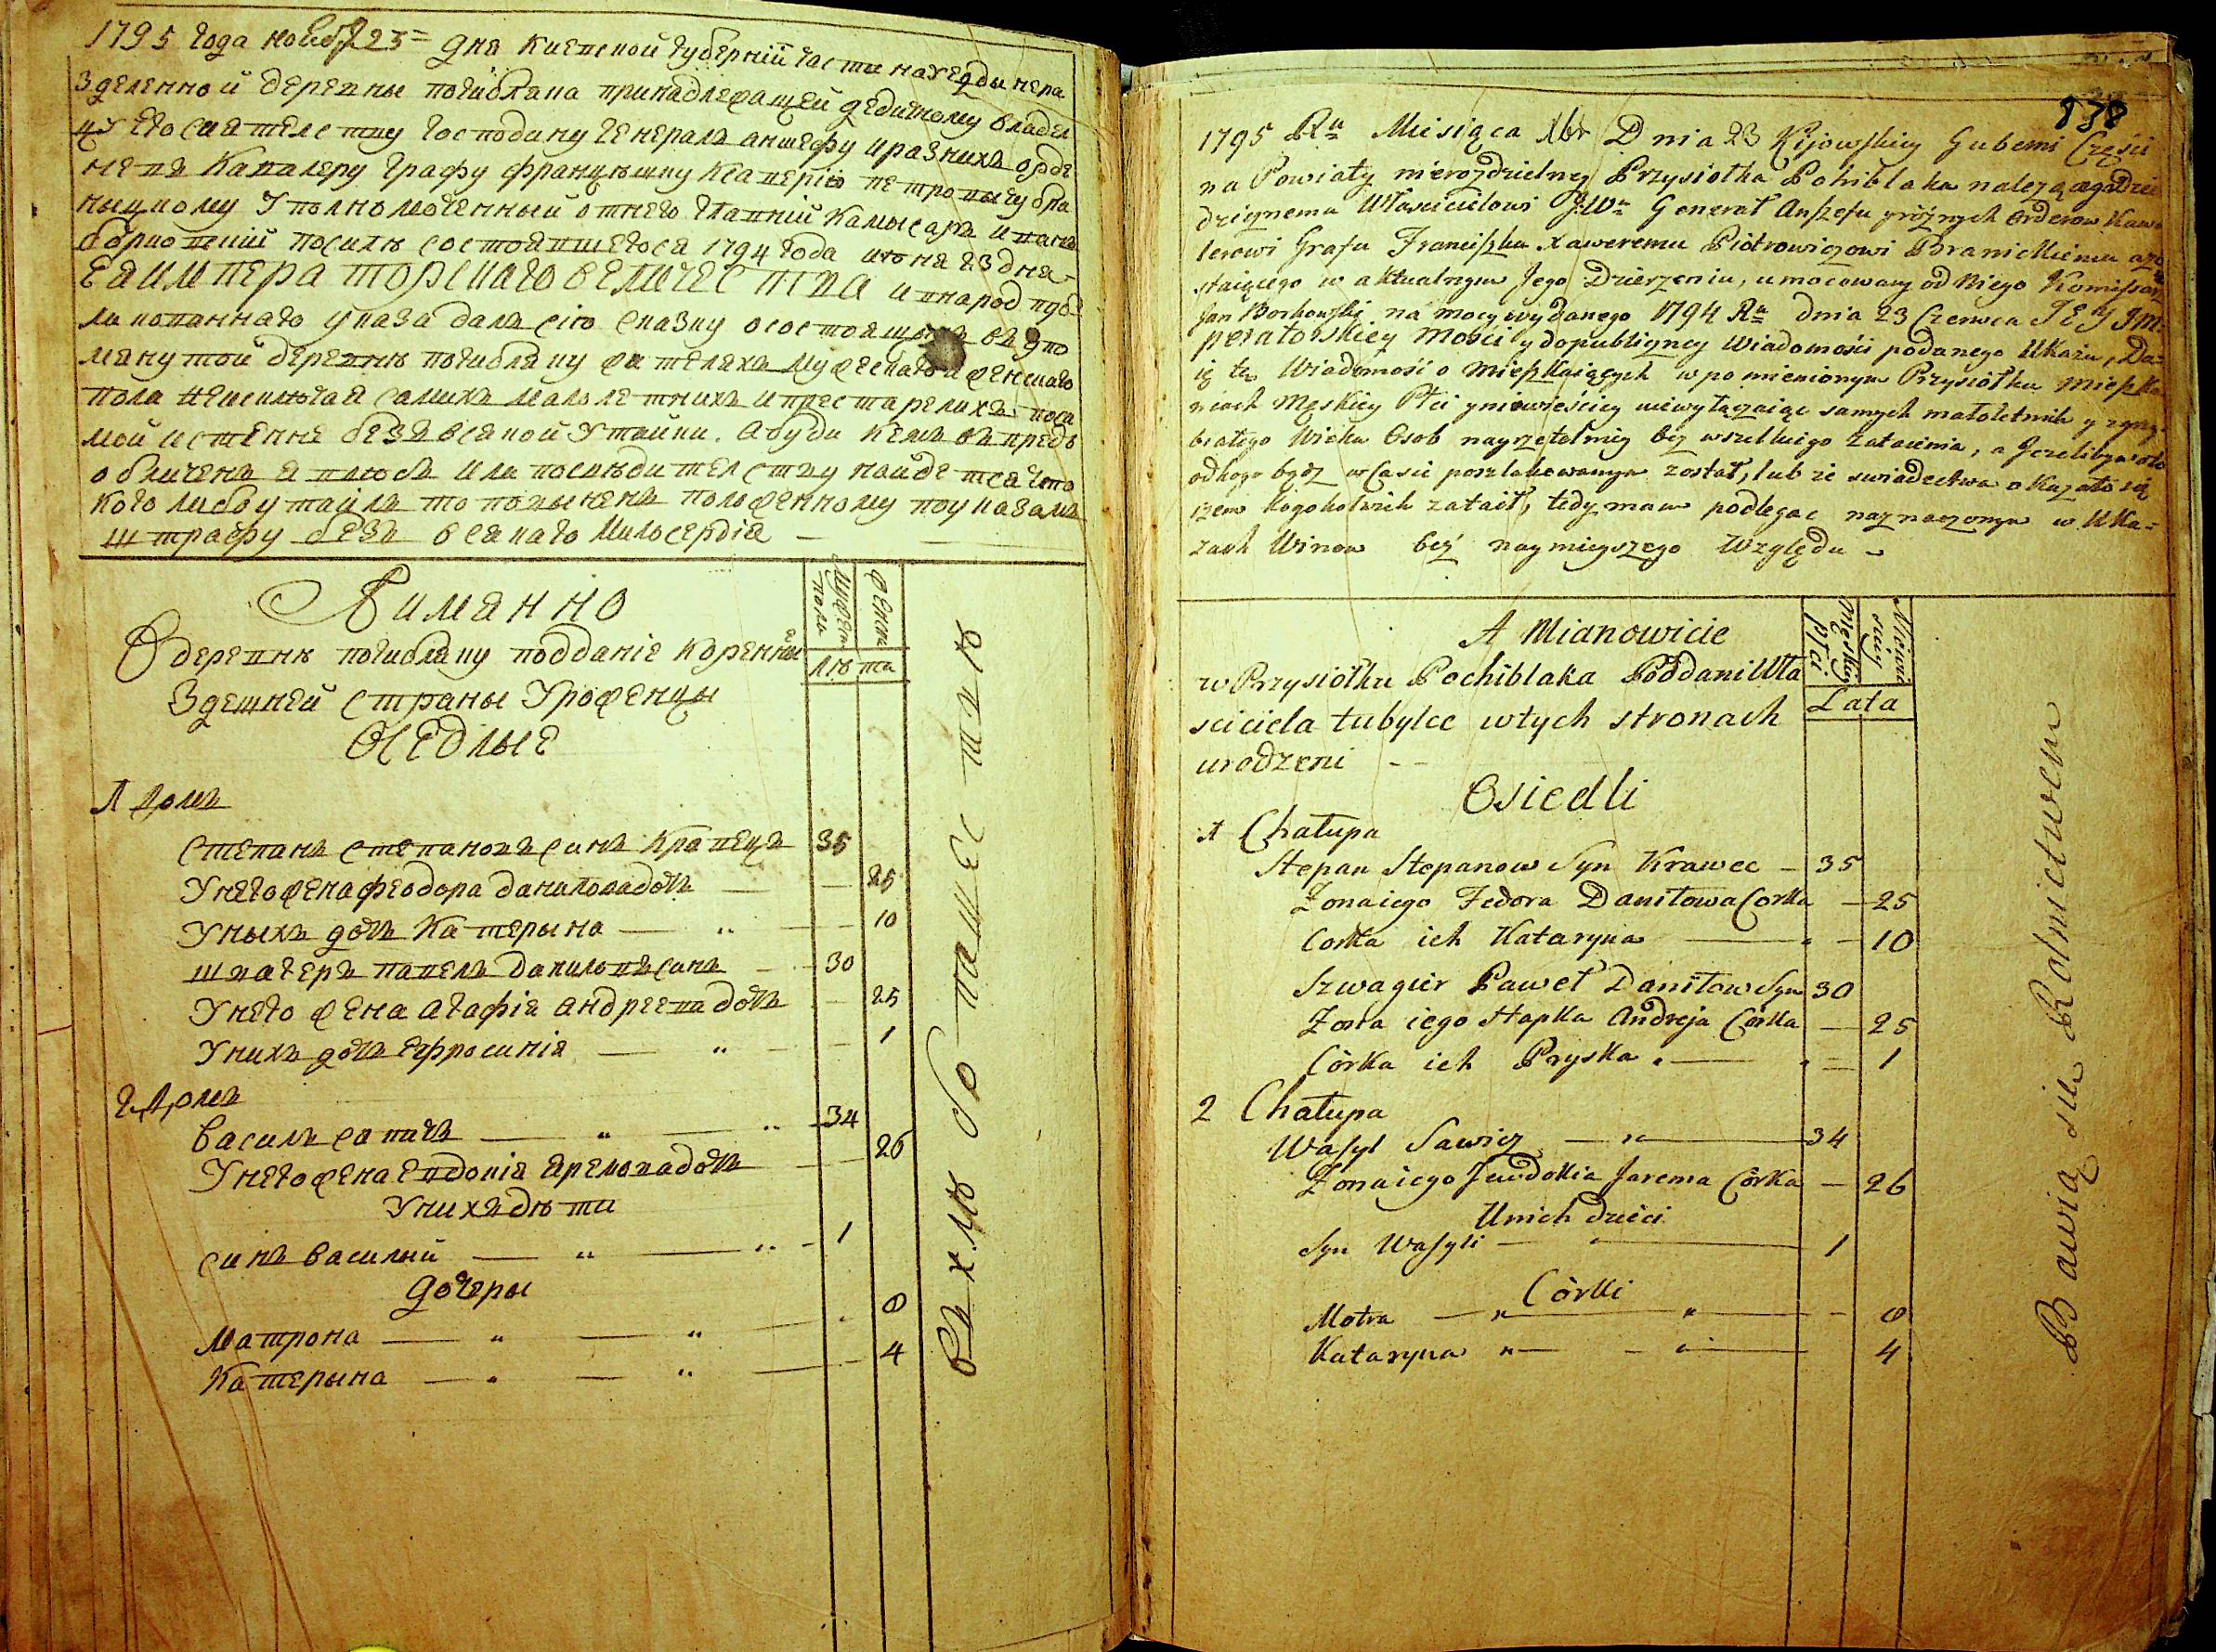 1795 года ноября 23= дня киевской губерний части науезды нера
зделенной деревны погибляка принадлежащей дедичному владел
цу Его сиятелству господину генералъ аншефу и разнихъ орде
новъ кавалеру графу францышку ксаверию петровычу бра
ныцкому Уполномоченный отнего главній камысаръ иванъ
борковскій посилѣ состоявшегося 1794 года июня 23 дня
ЕЯ ИМПЕРАТОРСКАГО ВЕЛИЧЕСТВА и внарод пуб
ликованнаго указа далъ сію сказку осостоящихъ въ упо
мянутой деревнѣ погибляку жителяхъ мужескаго и женскаго
пола неисключая самихъ малолетнихъ и престарелихъ поса
мой истенне безъ всякой утайки. А буди кемъ въпредь
обличенъ я явлюсь или послѣдителству найдется что
кого либо утаилъ то повыненъ положенному поуказамъ
штрафу безъ всякаго милосердія
Аимянно
Вдеревнѣ погибляку подданіе коренные
Здешней страны Уроженцы
Оседлые
мужеска полъ
женска
лѣта
1 домъ
степанъ степановъ синъ кравецъ 35
Унего жена феодора данилова дочь 25
Уныхъ дочь катерына 10
швагеръ павелъ даниловъ синъ 30
Унего жена агафія андреева дочь 25
Унихъ дочь Ефросинія 1
2 домъ
василь савичъ 34
Унего жена евдокія яремова дочь 26
Унихъ дѣти
синъ василый 1
дочеры
матрона 8
катерына 4
въ хлѣбопашествѣ
838
1795 Ru Miesiąca Xbr Dnia 23 Kijowskiey Guberni Części
na Powiaty nierozdzielney Przysiołka Pohiblaka należącego dzie
dzicznemu Właścicielowi J.Wu Generał Anszefu y róznych Orderow Kawa
lerowi Grafu Franciszku Xaweremu Piotrowiczowi Branickiemu a zo
staiącego w aktualnym Jego Dzierzeniu, umocowany od Niego Komissarz
Jan Borkowski na mocy wydanego 1794 Ru dnia 23 Czerwca JEY IM=
peratorskiey Mości y dopubliczney Wiadomości podanego Ukazu, Da=
ię tę Wiadomość o mieszkaiących w pomienionym Przysiołku mieszka
ńcach Męskiey Płci y niewieściey niewyłączaiąc samych małoletnich y zgrzy=
białego Wieku Osob nayrzetelniey bez wszelkiego zataienia, a Jezeliby w oto
odkogo bądz w czasie poszlakowanym został, lub ze swiadectwa okazało się
izem kogokolwiek zataił, tedy mam podlegac naznaczonym w Uka=
zach Winom bez naymnieyszego Względu
A Mianowicie
w Przysiołku Pochiblaka Poddani Wła
sciciela tubylce wtych stronach
urodzeni
Osiedli
Męskiey Płci
Niewieściey
Lata
1 Chałupa
Stepan Stepanow Syn Krawec 35
Żona iego Fedora Daniłowa Corka 25
Corka ich Kataryna 10
Szwagier Paweł Daniłow Syn 30
Żona iego Hapka Andreja Córka 25
Córka ich Pryska 1
2 Chałupa
Wasyl Sawicz 34
Żona iego Jewdokia Jarema Córka 26
U nich dzieci
Syn Wasyli 1
Córki
Motra 8
Kataryna 4
Bawią się Rolnictwem